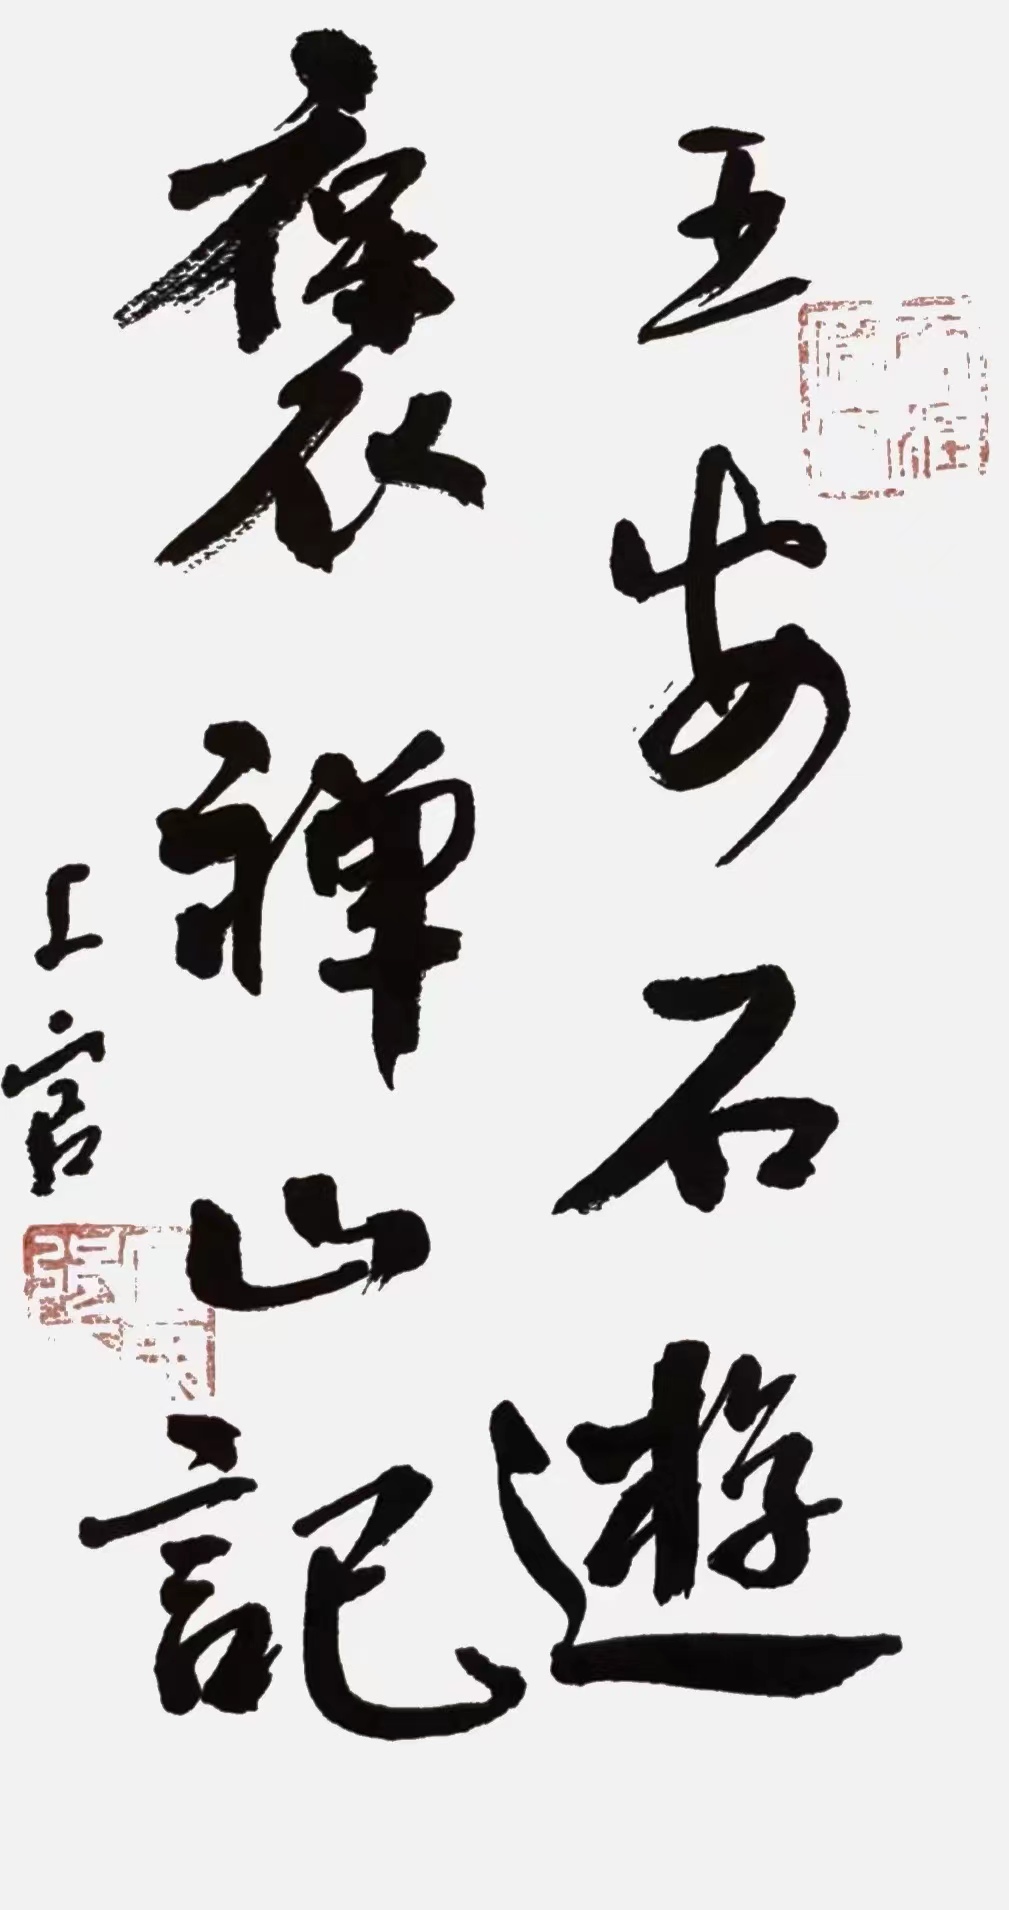 王安石遊
褒禪山記
上官